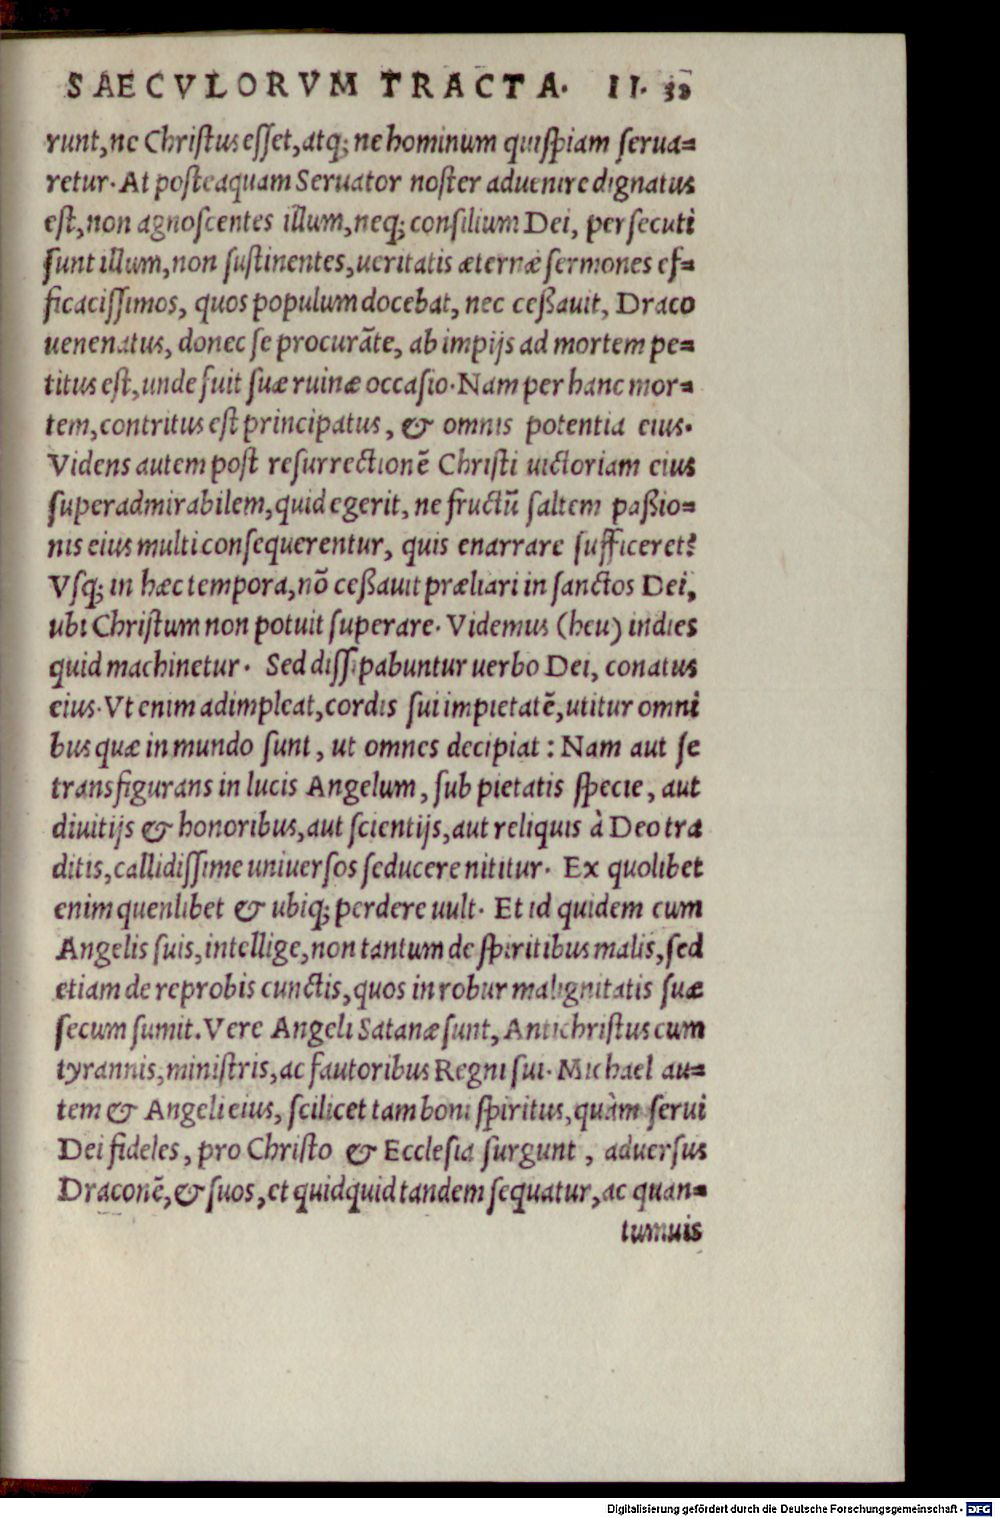 SAECVLORVM TRACTA. II. 39
runt, ne Christus esset, atq; ne hominum quispiam serua=
retur. At posteaquam Seruator noster aduenire dignatus
est, non agnoscentes illum, neq; consilium Dei, persecuti
sunt illum, non sustinentes, ueritatis æternæ sermones ef=
ficacissimos, quos populum docebat, nec ceßauit, Draco
uenenatus, donec se procurãte, ab impijs ad mortem pe=
titus est, unde fuit suæ ruinæ occasio. Nam per hanc mor=
tem, contritus est principatus, & omnis potentia eius.
Videns autem post resurrectionẽ Christi uictoriam eius
superadmirabilem, quid egerit, ne fructũ saltem paßio=
nis eius multi consequerentur, quis enarrare sufficeret?
Vsq; in hæc tempora, nõ ceßauit præliari in sanctos Dei,
ubi Christum non potuit superare. Videmus (heu) indies
quid machinetur. Sed dissipabuntur uerbo Dei, conatus
eius. Vt enim adimpleat, cordis sui impietatẽ, utitur omni
bus quæ in mundo sunt, ut omnes decipiat: Nam aut se
transfigurans in lucis Angelum, sub pietatis specie, aut
diuitijs & honoribus, aut scientijs, aut reliquis à Deo tra
ditis, callidissime universos seducere nititur. Ex quolibet
enim quenlibet & ubiq; perdere uult. Et id quidem cum
Angelis suis, intellige, non tantum de spiritibus malis, sed
etiam de reprobis cunctis, quos in robur malignitatis suæ
secum sumit. Vere Angeli Satanæ sunt, Antichristus cum
tyrannis, ministris, ac fautoribus Regni sui. Michael au=
tem & Angeli eius, scilicet tam boni spiritus, quàm serui
Dei fideles, pro Christo & Ecclesia surgunt, aduersus
Draconẽ, & suos, et quidquid tandem sequatur, ac quan=
tumuis
Digitalisierung gefördert durch die Deutsche Forschungsgemeinschaft - DFG